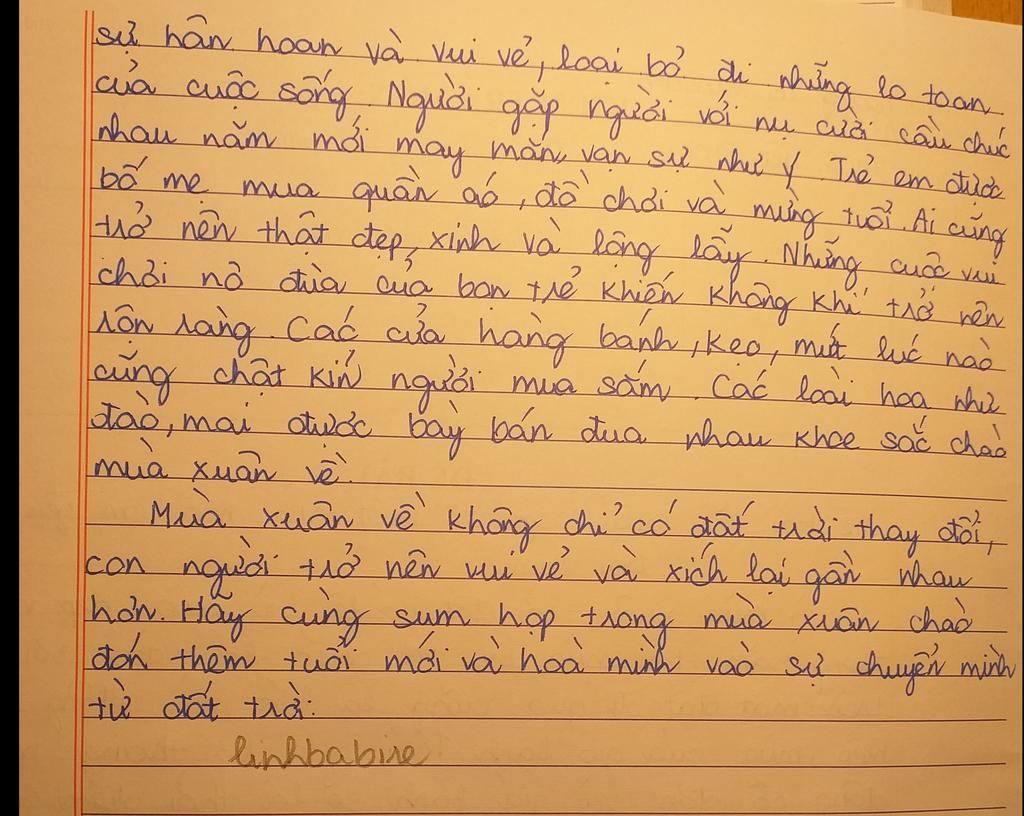 sự hân hoan và vui vẻ, loại bỏ đi những lo toan
của cuộc sống. Người gặp người với nụ cười cầu chúc
nhau năm mới may mắn, vạn sự như ý. Trẻ em được
bố mẹ mua quần áo, đồ chơi và mừng tuổi. Ai cũng
trở nên thật đẹp, xinh và lộng lẫy. Những cuộc vui
chơi nô đùa của bọn trẻ khiến không khí trở nên
rộn ràng. Các cửa hàng bánh, kẹo, mứt lúc nào
cũng chật kín người mua sắm. Các loài hoa như
đào, mai được bày bán đua nhau khoe sắc chào
mùa xuân về.
Mùa xuân về không chỉ có đất trời thay đổi,
con người trở nên vui vẻ và xích lại gần nhau
hơn. Hãy cùng sum họp trong mùa xuân chào
đón thêm tuổi mới và hoà mình vào sự chuyển mình
từ đất trời.
linhbabire